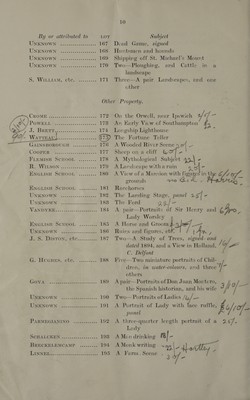 10
By or attributed to LOT Subject
UNKNOWN 167 Dead Game, signed
UNKNOWN 168 Herdsmen and hounds
UNKNOWN 169 Shipping off St. Michael's Mount
UNKNOWN 170 Two—Ploughing, and Cattle in a landscape
S. WILLIAM, etc. 171 Three—A pair Landscapes, and one other
Other Property.
CROME 172 On the Orwell, near Ipswich
POWELL 173 An Early View of Southampton
J. BRETT, 174 Longship Lighthouse
175 The Fortune Teller
GAINSBOROUGH 176 A Wooded River Scene
COOPER 177 Sheep on a cliff
FLEMISH SCHOOL 178 A Mythological Subject
R. WILSON 179 A Landscape with a ruin
ENGLISH SCHOOL 180 A View of a Mansion with figures in the grounds
ENGLISH SCHOOL 181 Racehorses
UNKNOWN 182 The Landing Stage, panel
UNKNOWN 183 The Ford
VANDYKE 184 A pair—Portraits of Sir Henry and Lady Worsley
ENGLISH SCHOOL 185 A Horse and Groom
UNKNOWN 186 Ruins and figures, etc.
J. S. DEPTON, etc. 187 Two—A Study of Trees, signed and dated 1804, and a View in Holland, C. Delfont
G. HUGHES, etc. 188 Five—Two miniature portraits of Children, in water-colours, and three others
GOYA 189 A pair—Portraits of Don Juan Montero, the Spanish historian, and his wife
UNKNOWN 190 Two—Portraits of Ladies
UNKNOWN 191 A Portrait of Lady with lace ruffle, panel
PARMEGIANINO 192 A three-quarter length portrait of a Lady
SCHALCKEN 193 A Man drinking
BRECKELENCAMP 194 A Monk writing
LINNEL 195 A Farm Scene